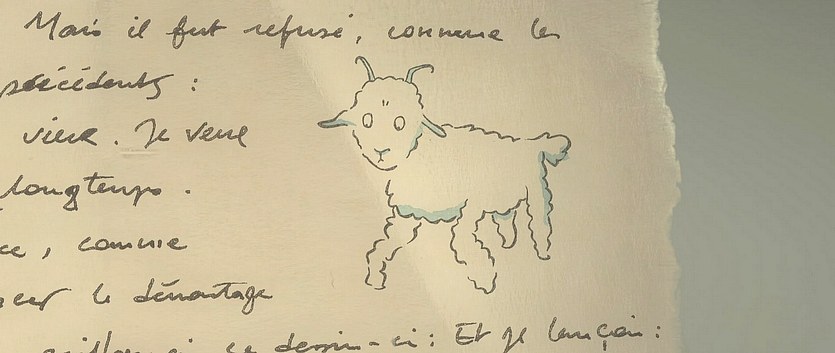 Mais il fut refusé, comme les
précédents :
vieux. Je veux
longtemps.
ce, comme
cer le démontage
ce dessin-ci : Et je lançai :